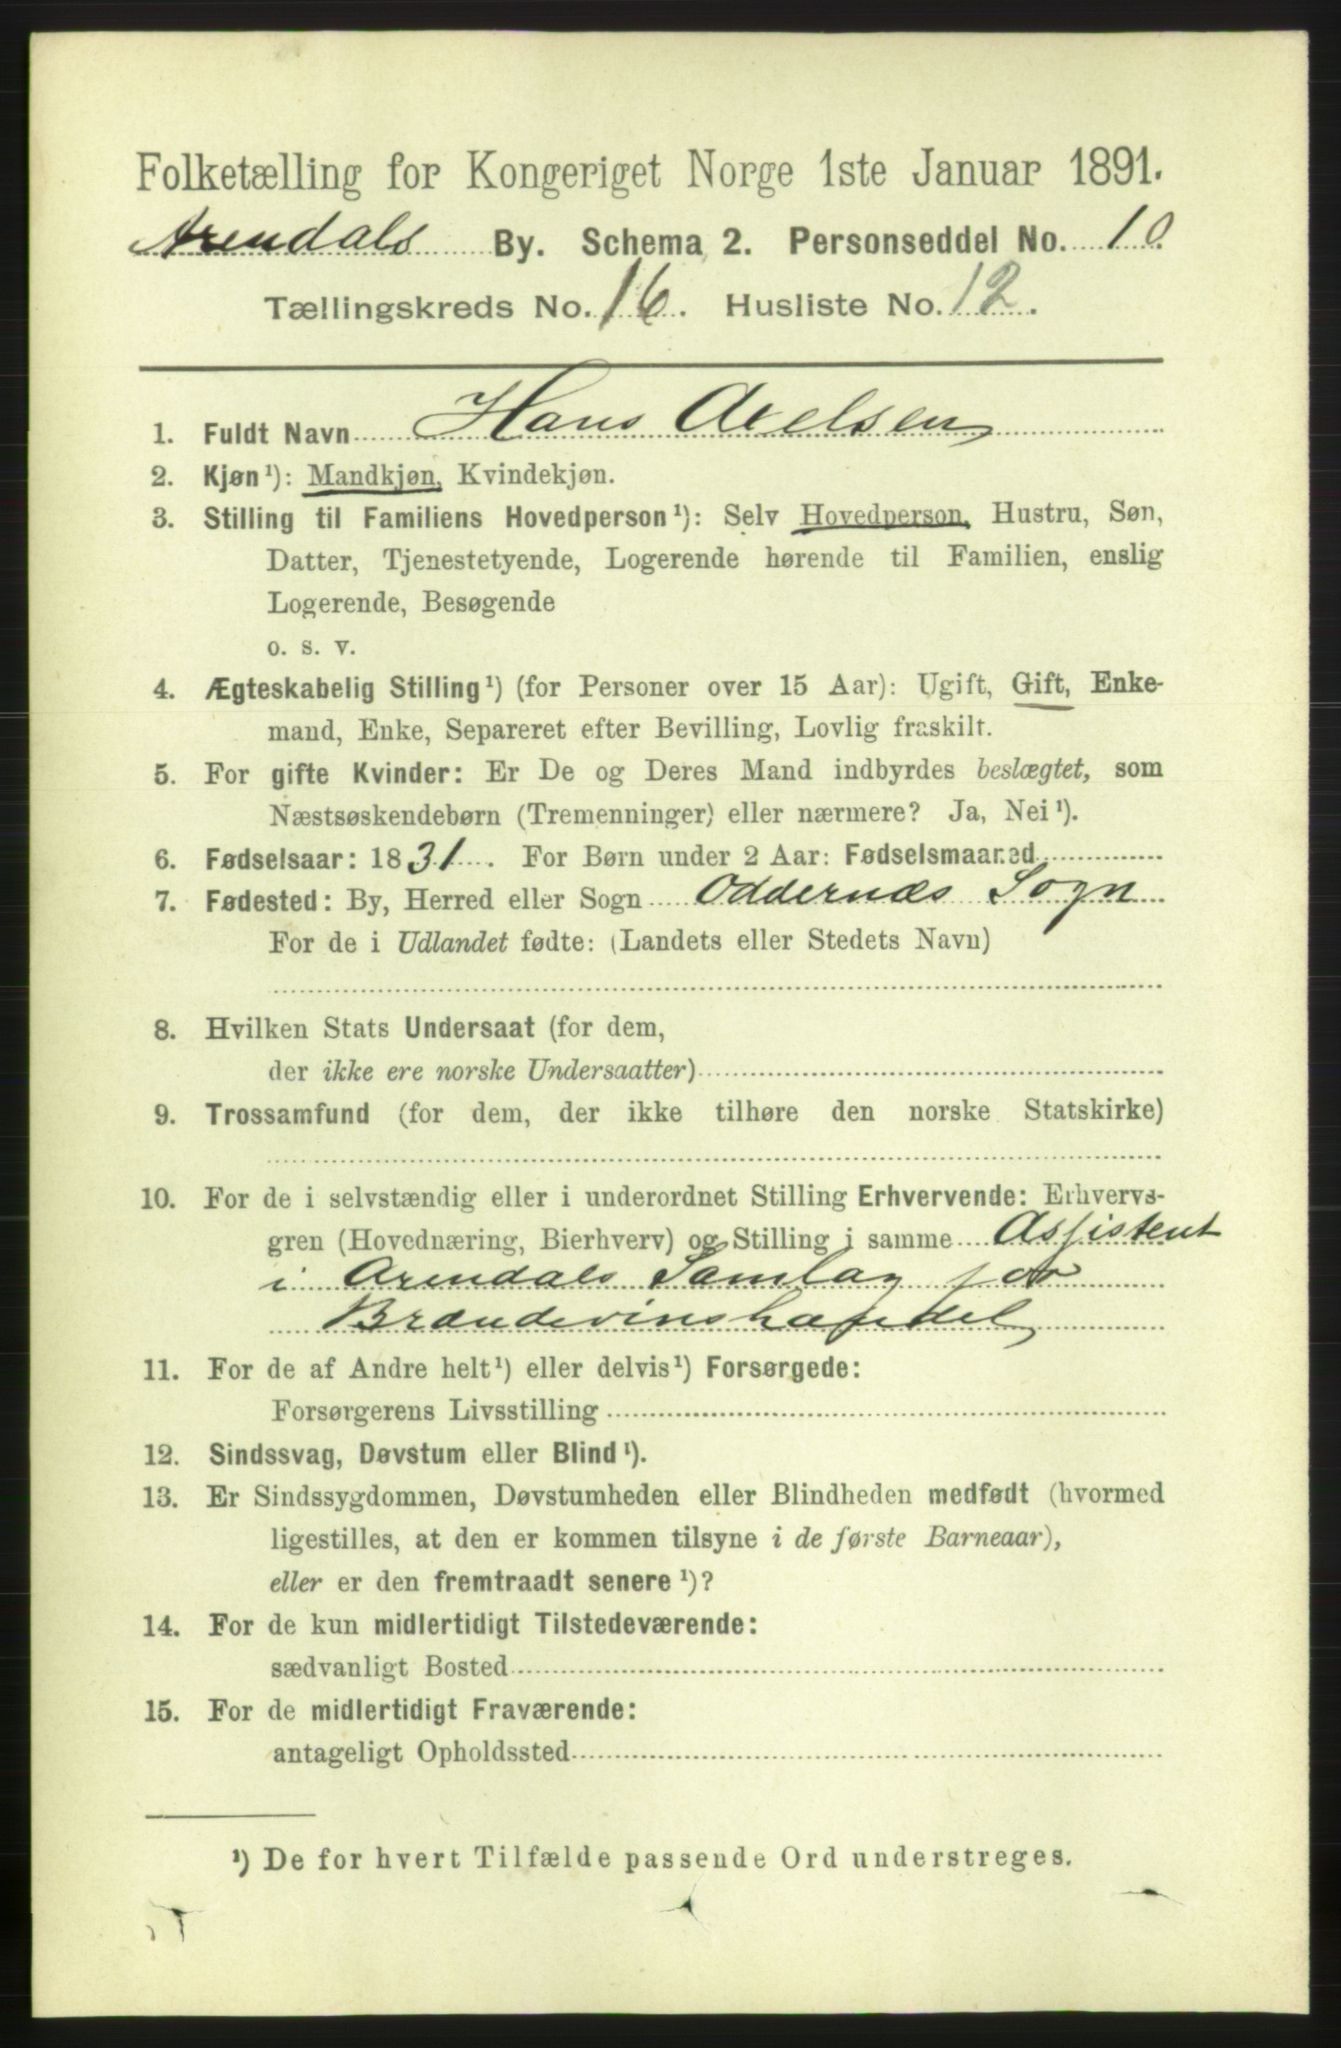 Folketælling for Kongeriget Norge 1ste Januar 1891.
Arendals By. Schema 2. Personseddel No. 10
Tællingskreds No. 16. Husliste No. 12.
1. Fuldt Navn Hans Axelsen
2. Kjøn¹): Mandkjøn, Kvindekjøn.
3. Stilling til Familiens Hovedperson¹): Selv Hovedperson, Hustru, Søn,
Datter, Tjenestetyende, Logerende hørende til Familien, enslig
Logerende, Besøgende
o. s. v.
4. Ægteskabelig Stilling¹) (for Personer over 15 Aar): Ugift, Gift, Enke-
mand, Enke, Separeret efter Bevilling, Lovlig fraskilt.
5. For gifte Kvinder: Er De og Deres Mand indbyrdes beslægtet, som
Næstsøskendebørn (Tremenninger) eller nærmere? Ja, Nei¹).
6. Fødselsaar: 1831. For Børn under 2 Aar: Fødselsmaaned
7. Fødested: By, Herred eller Sogn Oddernæs Sogn
For de i Udlandet fødte: (Landets eller Stedets Navn)
8. Hvilken Stats Undersaat (for dem,
der ikke ere norske Undersaatter)
9. Trossamfund (for dem, der ikke tilhøre den norske Statskirke)
10. For de i selvstændig eller i underordnet Stilling Erhvervende: Erhvervs-
gren (Hovednæring, Bierhverv) og Stilling i samme Assistent
i Arendals Samlag for
Brændevinshandel
11. For de af Andre helt¹) eller delvis¹) Forsørgede:
Forsørgerens Livsstilling
12. Sindssvag, Døvstum eller Blind¹).
13. Er Sindssygdommen, Døvstumheden eller Blindheden medfødt (hvormed
ligestilles, at den er kommen tilsyne i de første Barneaar),
eller er den fremtraadt senere¹)?
14. For de kun midlertidigt Tilstedeværende:
sædvanligt Bosted
15. For de midlertidigt Fraværende:
antageligt Opholdssted
¹) De for hvert Tilfælde passende Ord understreges.